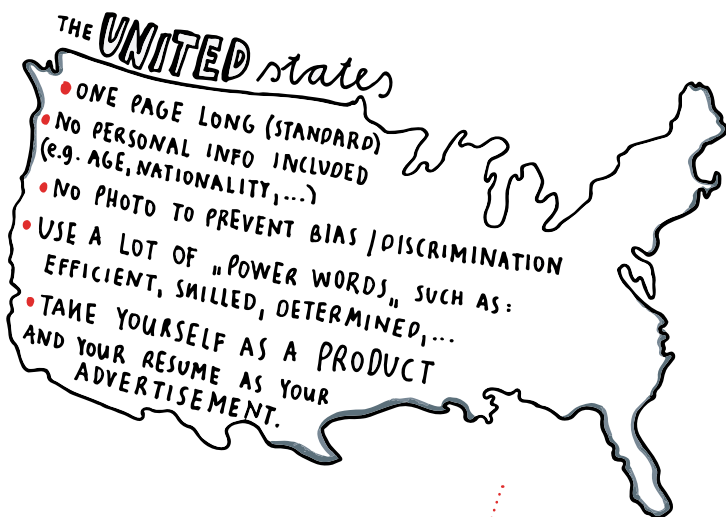 THE UNITED states
• ONE PAGE LONG (STANDARD)
• NO PERSONAL INFO INCLUDED
(e.g. AGE, NATIONALITY, ...)
• NO PHOTO TO PREVENT BIAS / DISCRIMINATION
• USE A LOT OF „POWER WORDS„ SUCH AS:
EFFICIENT, SKILLED, DETERMINED, ...
• TAKE YOURSELF AS A PRODUCT
AND YOUR RESUME AS YOUR
ADVERTISEMENT.